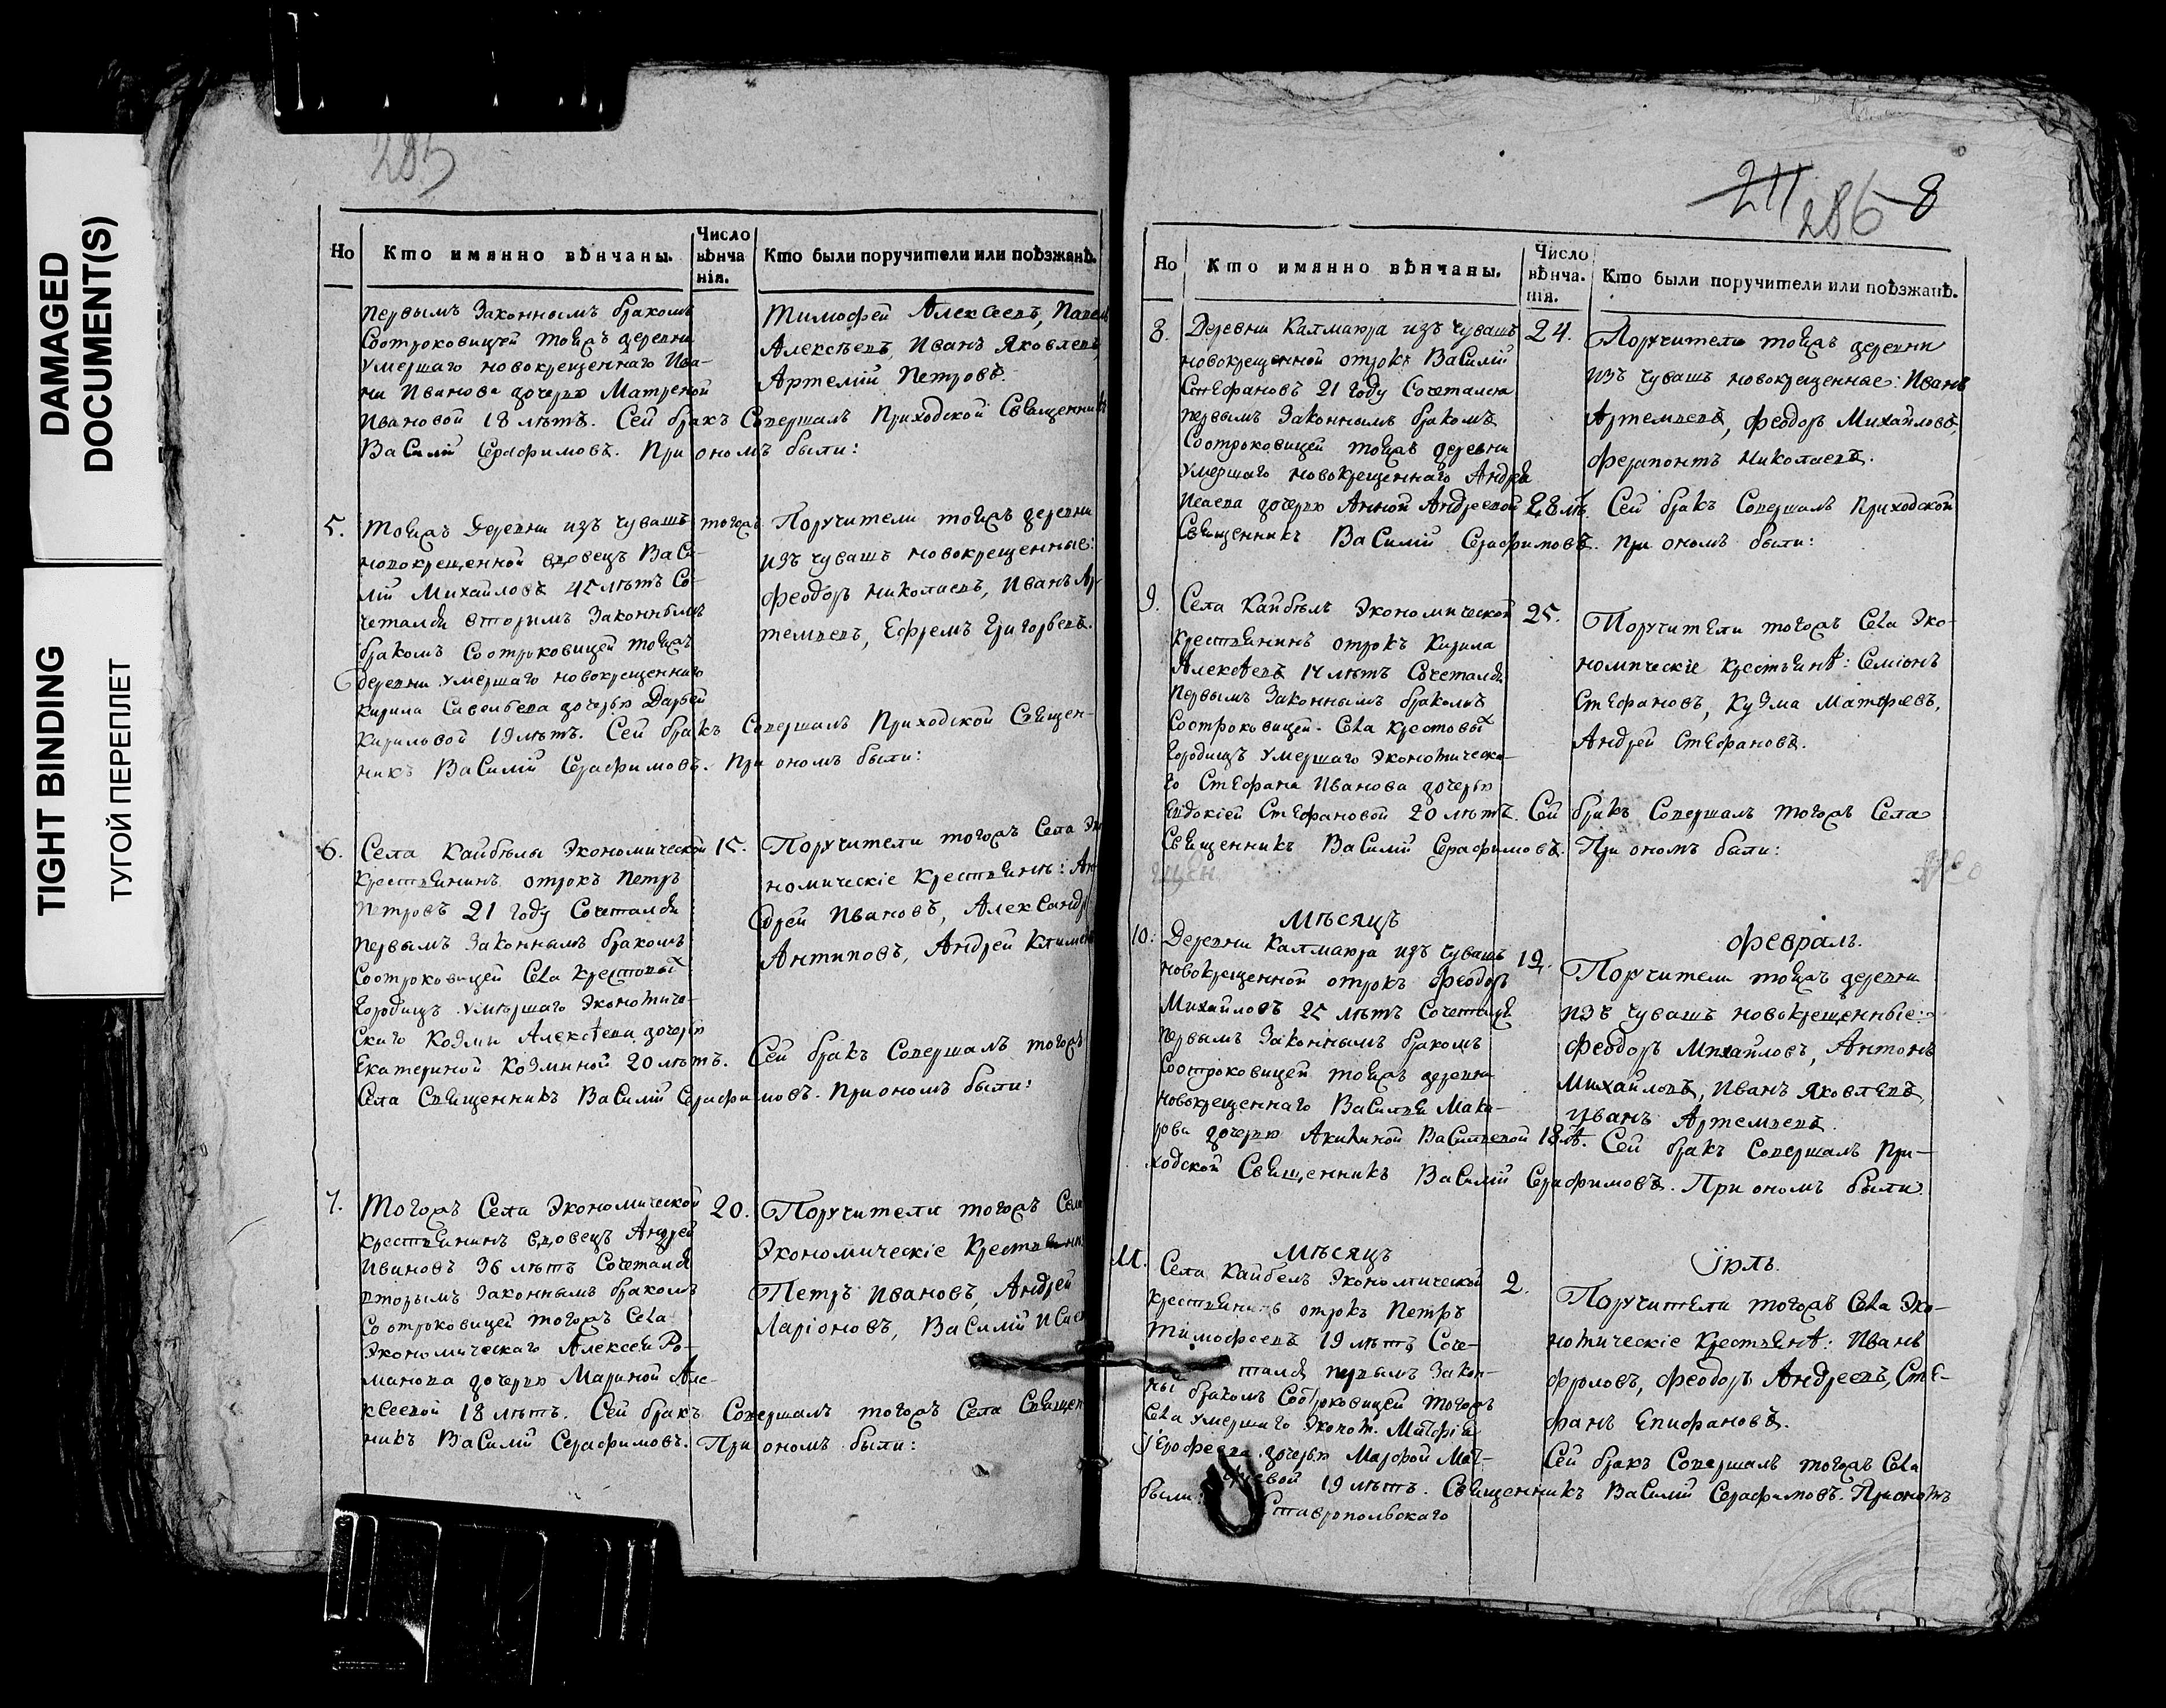 DAMAGED
DOCUMENT(S)
TIGHT BINDING
ТУГОЙ ПЕРЕПЛЕТ
285
Но
Кто имянно вѣнчаны.
Число
вѣнча
нія.
Кто были поручители или поѣзжанѣ.
первымъ Законнымъ бракомъ
Соотроковицей тояжъ деревни
умершаго новокрещеннаго Ива-
ни Иванова дочерью Матреной
Ивановой 18 лѣтъ. Сей бракъ Совершалъ Приходской Священникъ
Василій Серафимовъ. При ономъ были:
Тимофей Алексеевъ, Павелъ
Алексѣевъ, Иванъ Яковлевъ,
Артемій Петровъ.
5.
Тояжъ Деревни изъ чувашъ
новокрещенной вдовецъ Васи-
лій Михайловъ 45 лѣтъ Со-
четался вторымъ Законнымъ
бракомъ Соотроковицей тояжъ
деревни умершаго новокрещеннаго
Кирила Савельева дочерью Дарьей
Кириловой 19 лѣтъ. Сей бракъ Совершалъ Приходской Священ-
никъ Василій Серафимовъ. При ономъ были:
тогожъ
Поручители тояжъ деревни
изъ чувашъ новокрещенные:
Феодоръ Николаевъ, Иванъ Ар-
темьевъ, Ефремъ Григорьевъ.
6.
Села Кайбѣлы Экономической
Крестьянинъ отрокъ Петръ
Петровъ 21 году Сочетался
первымъ Законнымъ бракомъ
Соотроковицей Села Крестовыхъ
Городищъ умершаго Экономиче-
скаго Козмы Алексѣева дочерью
Екатериной Козминой 20 лѣтъ. Сей бракъ Совершалъ тогожъ
Села Священникъ Василій Серафимовъ. При ономъ были:
15.
Поручители тогожъ Села Эко
номическіе Крестьянѣ: Ан
дрей Ивановъ, Александръ
Антиповъ, Андрей
7.
Тогожъ Села Экономической
Крестьянинъ вдовецъ Андрей
Ивановъ 36 лѣтъ Сочетался
вторымъ Законнымъ бракомъ
Соотроковицей тогожъ Села
Экономическаго Алексея Ро-
манова дочерью Мариной Але-
ксеевой 18 лѣтъ. Сей бракъ Совершалъ тогожъ Села Священ
никъ Василій Серафимовъ. При ономъ были:
20.
Поручители тогожъ Села
Экономическіе Крестьяни
Петръ Ивановъ, Андрей
Ларіоновъ, Василій
211 286 8
Но
Кто имянно вѣнчаны.
Число
вѣнча.
нія.
Кто были поручители или поѣзжанѣ.
8.
Деревни Калмаюра изъ чувашъ
новокрещенной отрокъ Василій
Стефановъ 21 году Сочетался
первымъ Законнымъ бракомъ
Соотроковицей тояжъ деревни
умершаго новокрещеннаго Андрея
Исаева дочерью Анной Андреевой 28 лѣ. Сей бракъ Совершалъ Приходской
Священникъ Василій Серафимовъ. При ономъ были:
24.
Поручители тояжъ деревни
изъ чувашъ новокрещенные: Иванъ
Артемьевъ, Феодоръ Михайловъ,
Ферапонтъ Николаевъ.
9.
Села Кайбѣлъ Экономической
Крестьянинъ отрокъ Кирила
Алексѣевъ 17 лѣтъ Сочетался
первымъ Законнымъ бракомъ
Соотроковицей Села Крестовыхъ
Городищъ умершаго Экономическа-
го Стефана Иванова дочерью
Евдокіей Стефановой 20 лѣтъ. Сей бракъ Совершалъ тогожъ Села
Священникъ Василій Серафимовъ. При ономъ были:
25.
Поручители тогожъ Села Эко-
номическіе Крестьянѣ: Семіонъ
Стефановъ, Кузма Матфѣевъ,
Андрей Стефановъ.
Мѣсяцъ
Февраль.
10.
Деревни Калмаюра изъ чувашъ
новокрещенной отрокъ Феодоръ
Михайловъ 25 лѣтъ Сочетался
первымъ Законнымъ бракомъ
Соотроковицей тояжъ деревни
новокрещеннаго Василья Мака-
рова дочерью Акилиной Васильевой 18 лѣ. Сей бракъ Совершалъ При-
ходской Священникъ Василій Серафимовъ. При ономъ были
19.
Поручители тояжъ деревни
изъ чувашъ новокрещенные:
Феодоръ Михайловъ, Антонъ
Михайловъ, Иванъ Яковлевъ,
Иванъ Артемьевъ.
Мѣсяцъ
Іюль.
11.
Села Кайбелъ Экономической
Крестьянинъ отрокъ Петръ
Тимофеевъ 19 лѣтъ Соче-
тался первымъ Закон-
ны бракомъ Соотроковицей тогожъ
Села умершаго Эконом. Матфѣя
Ерофеева дочерью Марфой Мат-
фѣевой 19 лѣтъ. Священникъ Василій Серафимовъ. При ономъ
были: Ставропольскаго
2.
Поручители тогожъ Села Эко-
номическіе Крестьянѣ: Иванъ
Фроловъ, Феодоръ Андреевъ, Сте-
фанъ Епифановъ.
Сей бракъ Совершалъ тогожъ Села